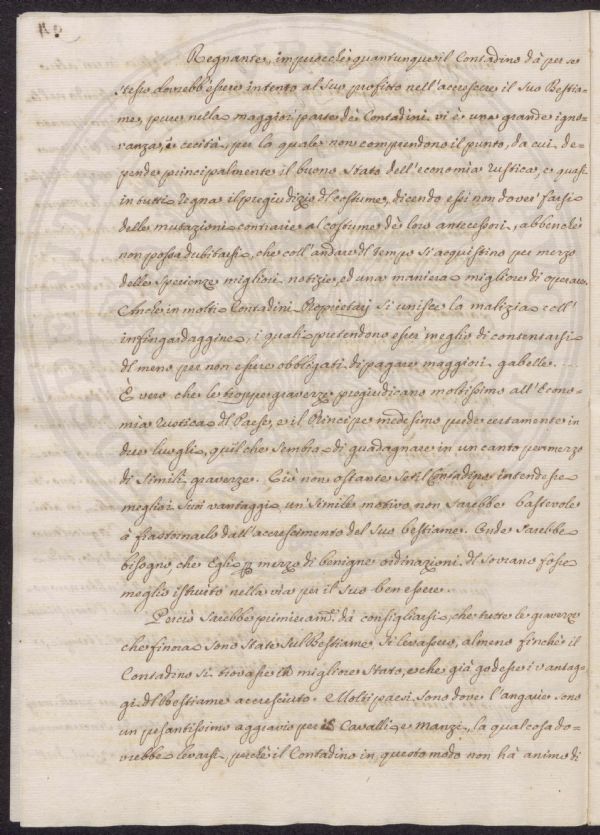 Regnante, imperocchè quantunque il Contadino dà per se
stesso dovrebb'essere intento al suo profitto nell'accrescere il suo Bestia-
me, pure nella maggior parte dei Contadini vi è una grande igno-
ranza, e cecità, per la quale non comprendono il punto, da cui de-
pende principalmente il buono Stato dell'economia rustica, e quasi
in tutti regna il pregiudizio dl costume, dicendo essi non dover farsi
delle mutazioni contrarie al costume dè loro antecessori, abbenchè
non possa dubitarsi, che coll'andare dl tempo si acquistino per mezzo
delle Sperienze migliori notizie, ed una maniera migliore di operare.
Anche in molti Contadini Proprietarj si unisce la malizia coll'
infingardaggine, i quali pretendono esser meglio di contentarsi
dl meno per non essere obbligati di pagare maggiori gabelle. ...
È vero che le troppe gravezze pregiudicano moltissimo all'Econo-
mia rustica dl Paese, e il Principe medesimo perde certamente in
due luoghi, quel che sembra di guadagnare in un canto per mezzo
di simili gravezze. Ciò non ostante se il Contadino intendesse
meglio i suoi vantaggi un simile motivo non sarebbe bastevole
à frastornarlo dall'accrescimento del suo bestiame. Onde sarebbe
bisogno, che Egli p mezzo di benigne ordinazioni dl Sovrano fosse
meglio istruito nella via per il suo ben essere.
Perciò sarebbe primieram. da consigliarsi, che tutte le gravezze
che finora sono state sul Bestiame, si levassero, almeno finchè il
Contadino si trovasse in migliore Stato, e che già godesse i vantag-
gi dl Bestiame accresciuto. Molti paesi sono dove l'angarie sono
un pesantissimo aggravio per i Cavalli, e Manzi, la qual cosa do-
vrebbe levarsi, perchè il Contadino in questo modo non hà animo di